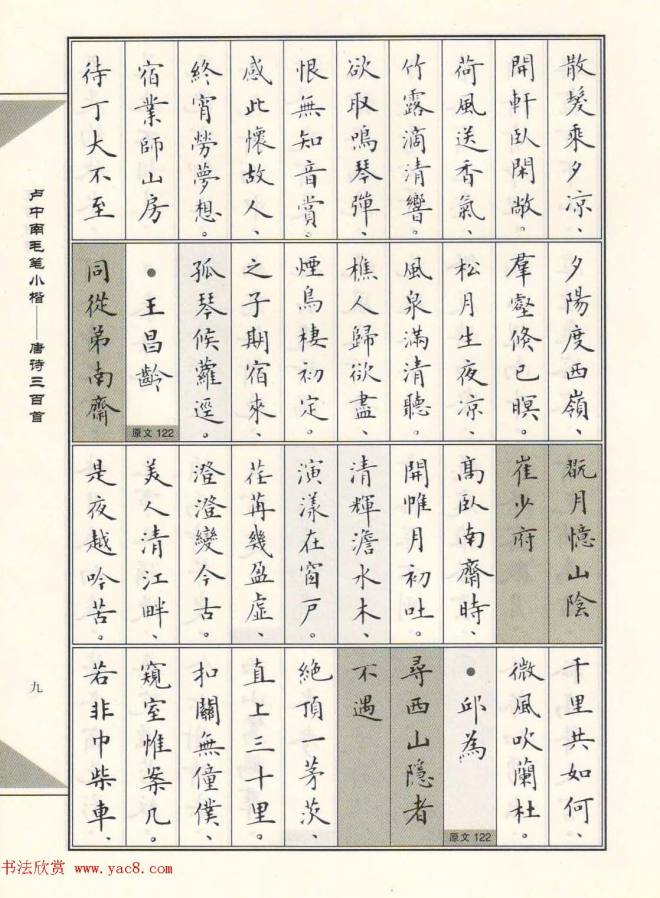 散髮乘夕凉、
開軒臥閑敞。
荷風送香氣、
竹露滴清響。
欲取鳴琴彈、
恨無知音賞。
感此懷故人、
終宵勞夢想。
宿業師山房
待丁大不至
夕陽度西嶺、
羣壑倏已暝。
松月生夜凉、
風泉滿清聽。
樵人歸欲盡、
煙鳥棲初定。
之子期宿來、
孤琴候蘿逕。
•王昌齡
原文 122
同從弟南齋
翫月憶山陰
崔少府
高臥南齋時、
開帷月初吐。
清輝澹水木、
演漾在窗戸。
荏苒幾盈虛、
澄澄變今古。
美人清江畔、
是夜越吟苦。
千里共如何、
微風吹蘭杜。
•邱為
原文 122
尋西山隱者
不遇
絶頂一茅茨、
直上三十里。
扣關無僮僕、
窺室惟案几。
若非巾柴車、
卢中南毛笔小楷——唐诗三百首
九
书法欣赏 www.yac8.com